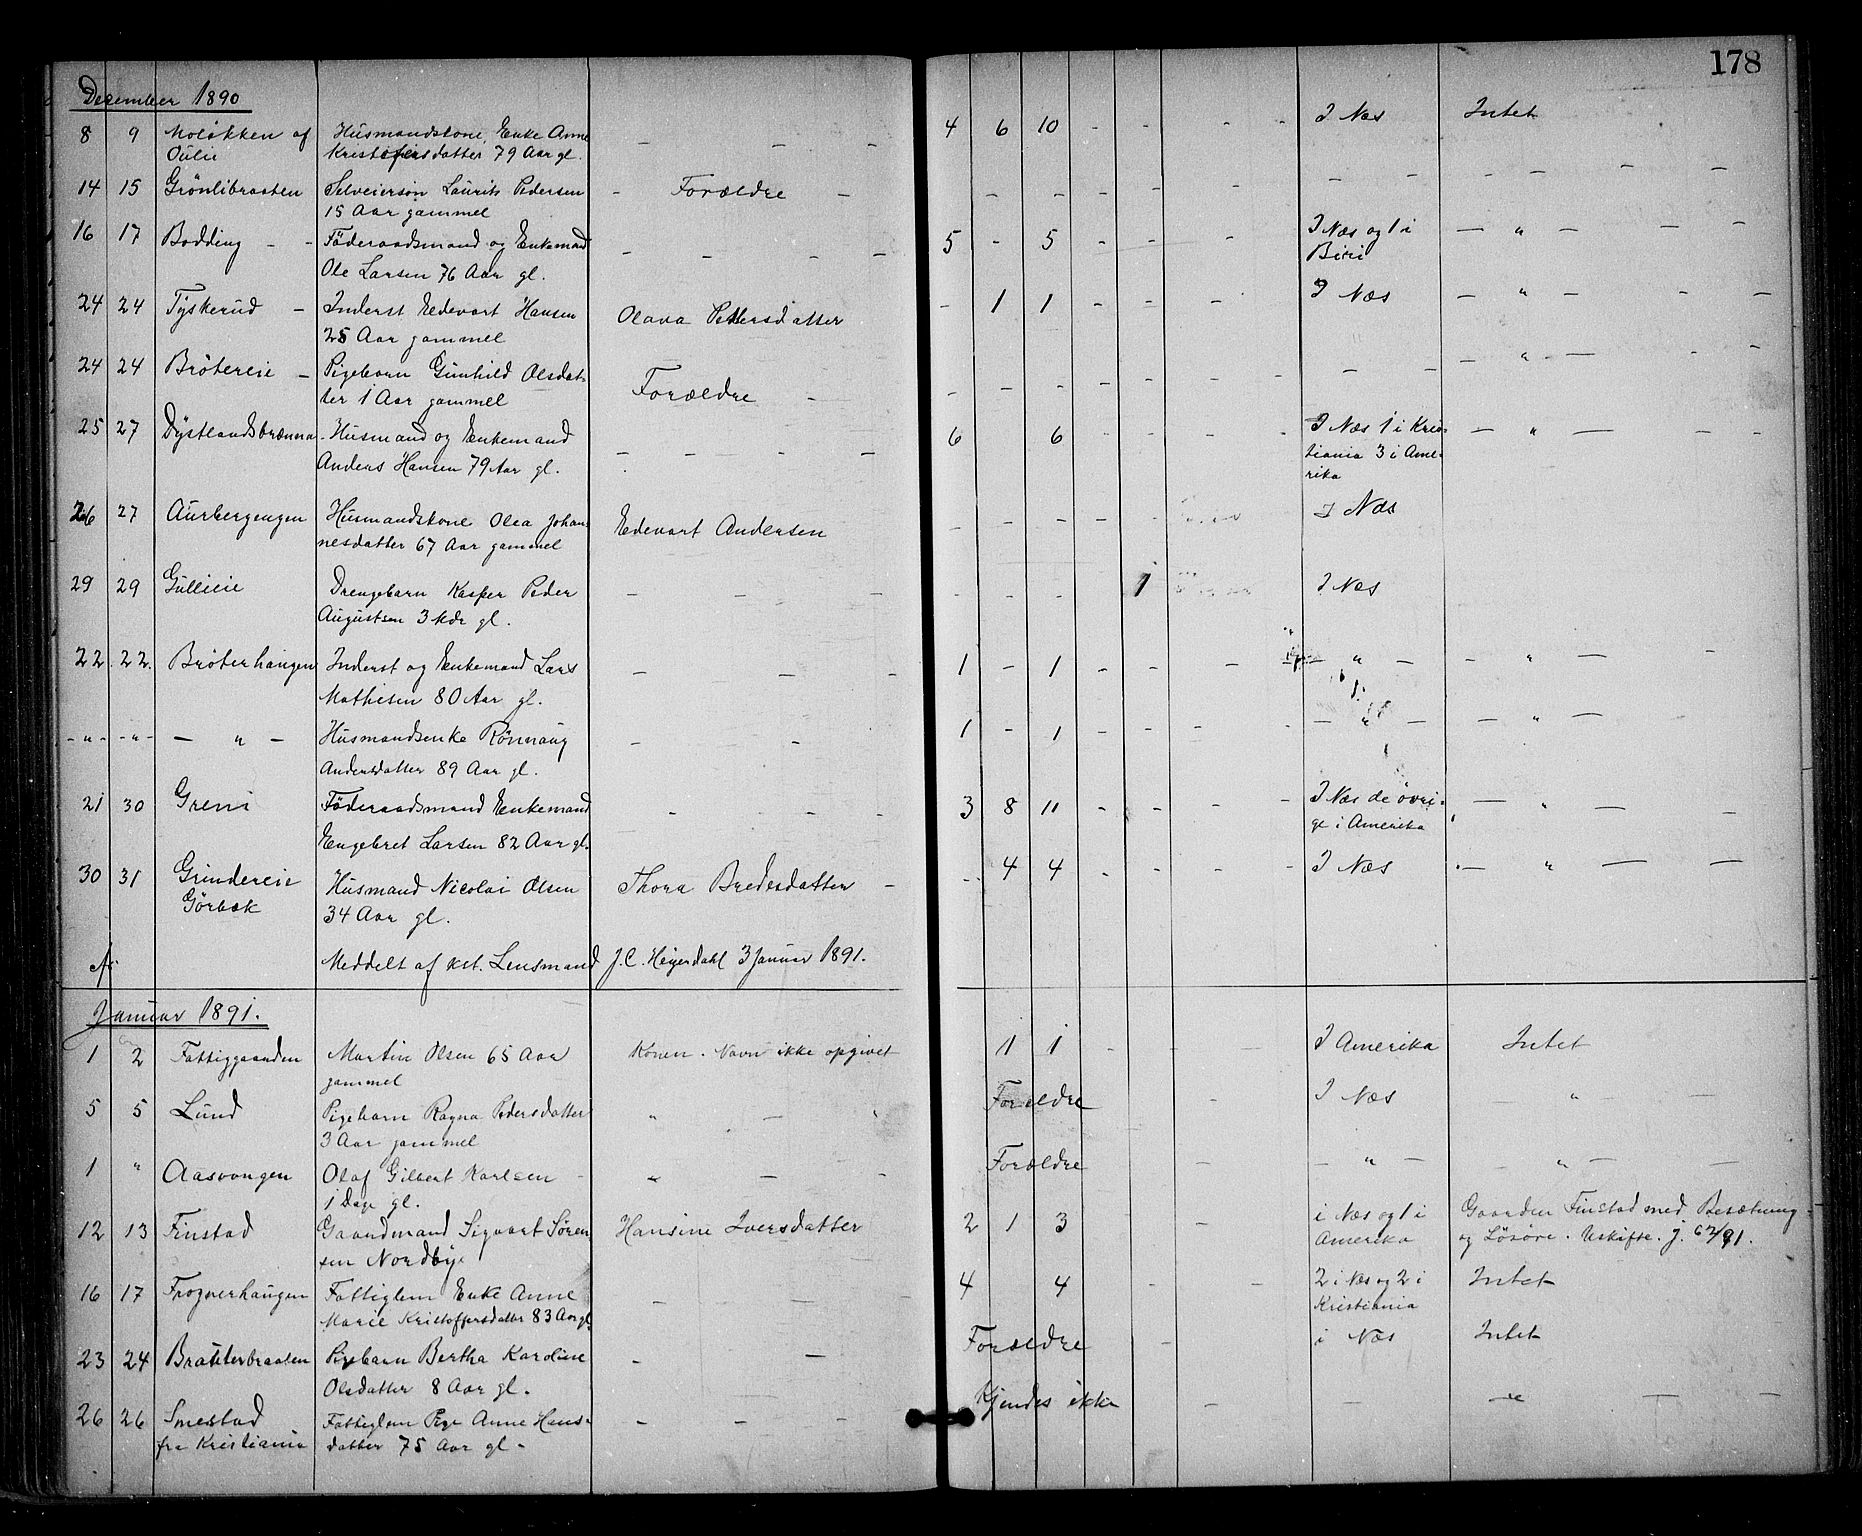 178
December 1890
8 9 Moløkken af Husmandskone Enke Anne — — — 4 6 10 - - - - I Næs Intet
Dulie Kristofersdatter 79 Aar gl.
14 15 Grönlibraaten Selveiersøn Laurits Pedersen - Forældre — — — — — — — — — — — —
15 Aar gammel
16 17 Bodding - - Föderaadsmand og Enkemand — — — 5 - 5 - - - - I Næs og 1 i — " — — —
Ole Larsen 76 Aar gl. Biri
24 24 Tyskerud — Inderst Edevart Hansen Olava Pettersdatter - 1 1 - - - I Næs — " — — —
25 Aar gammel
24 24 Brötereie — Pigebarn Gunhild Olsdat- Forældre — - - - - - - - — — — " — — —
ter 1 Aar gammel
25 27 Dystlandsbrænna - Husmand og Enkemand — — — 6 6 - - - - I Næs 1 i Kris- — " — — —
Anders Hansen 79 Aar gl. tiania 3 i Ame-
rika
26 27 Aurbergengen Husmandskone Olea Johan- Edevart Andersen - - - - - I Næs
nesdatter 67 Aar gammel
29 29 Gullieie Drengebarn Kasper Peder — — — - - - - 1 I Næs
Augustsen 3 Mdr gl.
22. 22. Bröterhaugen Inderst og Enkemand Lars — — — 1 - 1 - - - — " — — " — —
Mathisen 80 Aar gl.
- " - - " - — " — Husmandsenke Rönnaug — — — 1 - 1 - - - — " — — " — —
Andersdatter 89 Aar gl.
21 30 Greni Föderaadsmand Enkemand - - - 3 8 11 - - - - I Næs de övri- — " — —
Engebret Larsen 82 Aar gl. ge i Amerika
30 31 Grindereie Husmand Nicolai Olsen Thora Bredesdatter — - 4 4 - - - - I Næs — " — —
Görbæk 34 Aar gl.
Meddelt af kst. Lensmand J. C. Heijerdahl 3 Januar 1891.
Januar 1891.
1 2 Fattiggaarden Martin Olsen 65 Aar Konen. Navn ikke opgivet 1 1 - - - I Amerika Intet
gammel
5 5 Lund Pigebarn Ragna Pedersdatter " — " Forældre I Næs — " —
3 Aar gammel
1 " Aasvangen Olaf Gilbert Karlsen - " — - Forældre — — " — — " — —
1 Dage gl.
12 13 Finstad Gaardmand Sigvart Søren- Hansine Iversdatter 2 1 3 i Næs og 1 i Gaarden Finstad med Besætning
sen Nordbye Amerika og Lösöre. Uskifte. j. 62/91.
16 17 Frognerhaugen Fattiglem Enke Anne — — — 4 4 - - 2 i Næs og 2 i Intet
Marie Kristoffersdatter 83 Aar gl. Kristiania
23 24 Bratterbraaten Pigebarn Bertha Karoline - — Forældre - i Næs Intet
Olsdatter 8 Aar gl.
26 26 Smestad Fattiglem Pige Anne Hans- - - - Kjendes ikke — — — —
fra Kristiania datter 75 Aar gl -